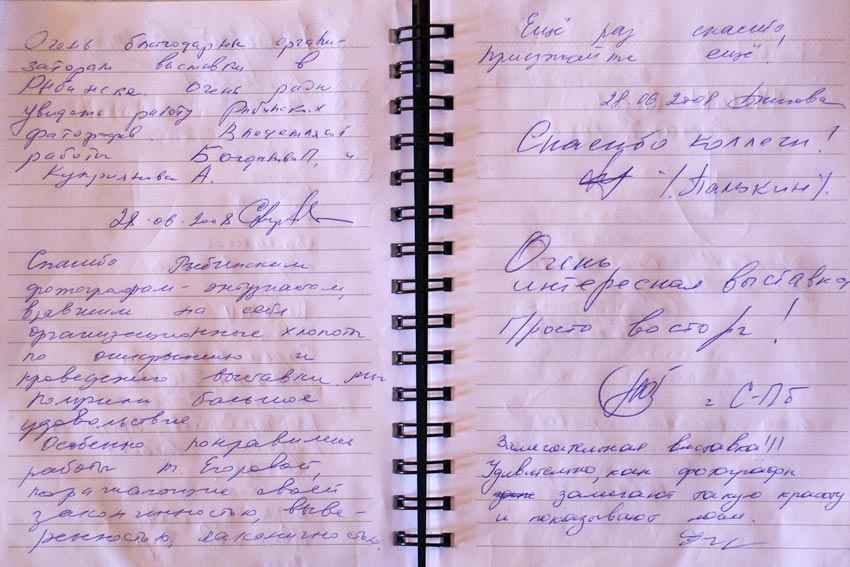 Очень благодарны органи-
заторам выставки в
Рыбинске. Очень рады
увидеть работу Рыбинских
фотографов. Впечатляют
работы Богданова П. и
Куприянова А.
28.06.2008
Спасибо Рыбинским
фотографам-энтузиастам,
взявшим на себя
организационные хлопоты
по открытию и
проведению выставки. Мы
получили большое
удовольствие.
Особенно понравились
работы т. Егоровой,
поражающие своей
законченностью, выве-
ренностью, лаконичностью.
Ещё раз спасибо,
приезжайте ещё!
28.06.2008
Спасибо коллеги!
/.Палькин/.
Очень
интересная выставка
Просто восторг!
г С-Пб
Замечательная выставка!!!
Удивительно, как фотографы
замечают такую красоту
и показывают нам.